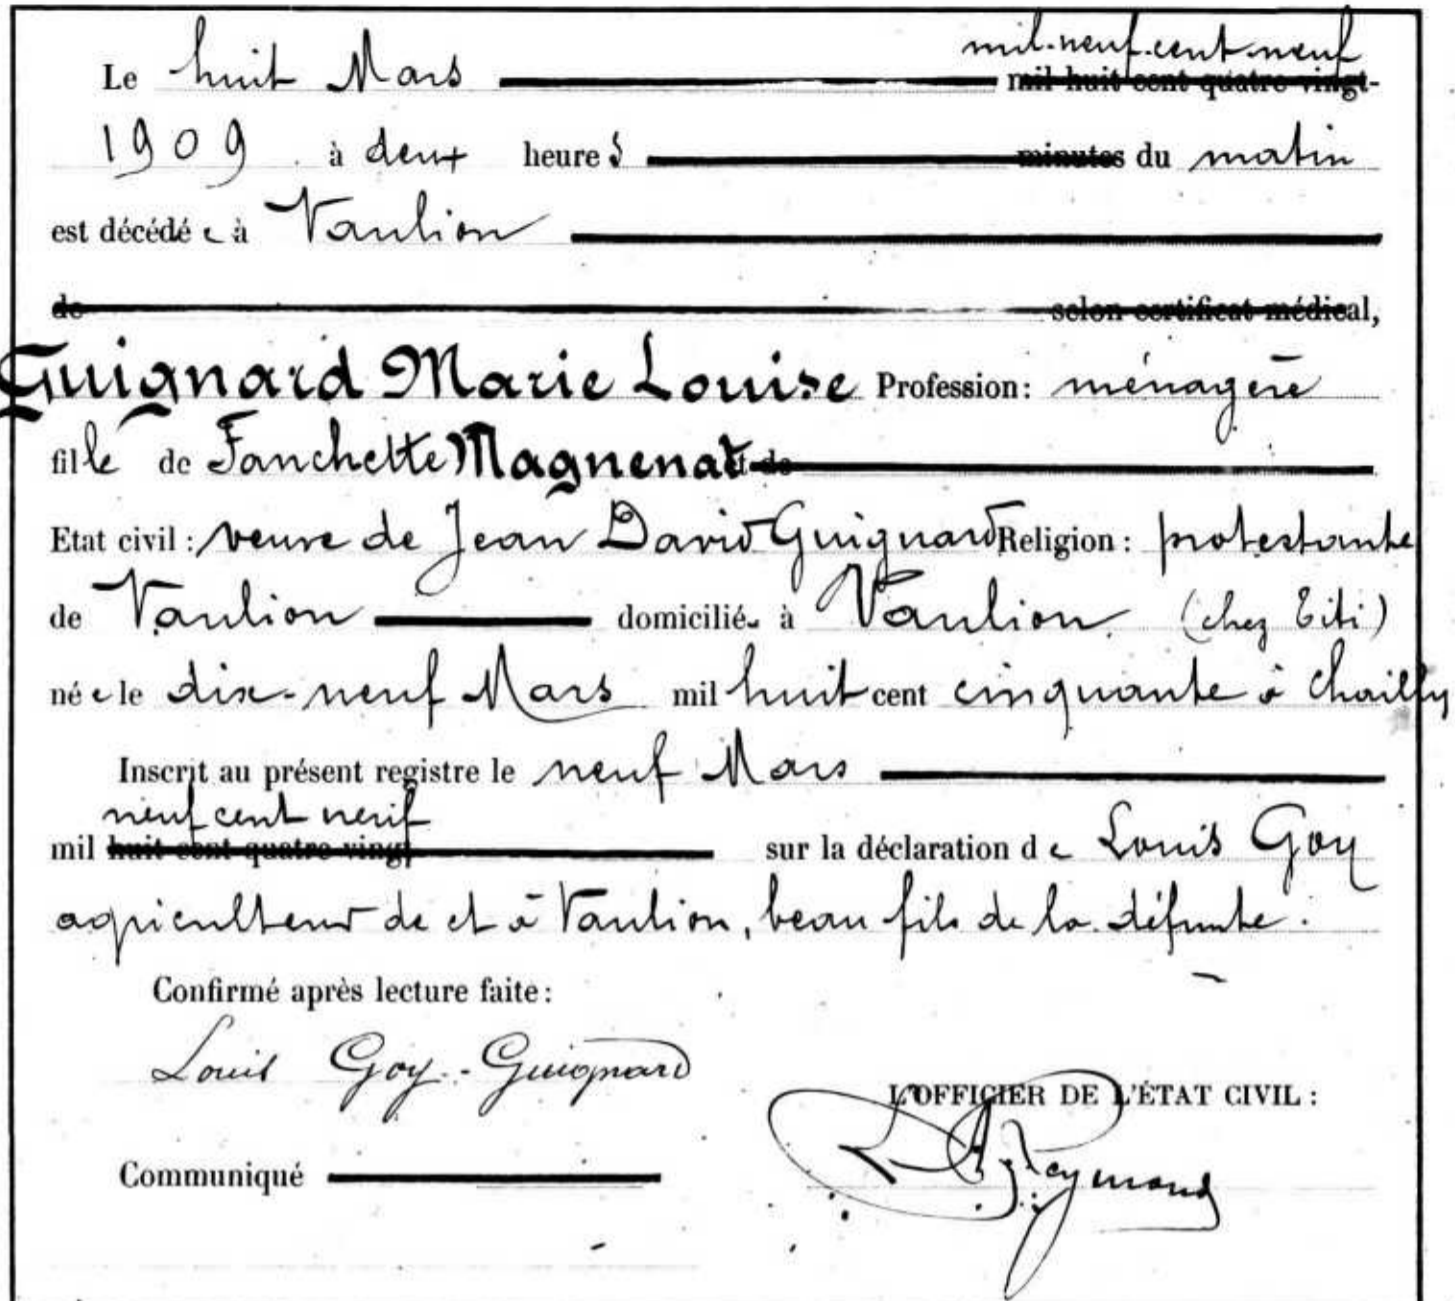 mil-neuf-cent-neuf
Le huit Mars mil huit cent quatre vingt-
1909 à deux heures minutes du matin
est décédée à Vaulion
de selon certificat médical,
Guignard Marie Louise Profession: ménagère
fille de Fanchette Magnenat et de
Etat civil: veuve de Jean David Guignard Religion: protestante
de Vaulion domiciliée à Vaulion (chez Titi)
née le dix-neuf Mars mil huit cent cinquante à Chailly
Inscrit au présent registre le neuf Mars
neuf cent neuf
mil huit cent quatre vingt sur la déclaration de Louis Goy
agriculteur de et à Vaulion, beau fils de la défunte.
Confirmé après lecture faite:
Louis Goy-Guignard
L'OFFICIER DE L'ÉTAT CIVIL:
Communiqué
Reymond